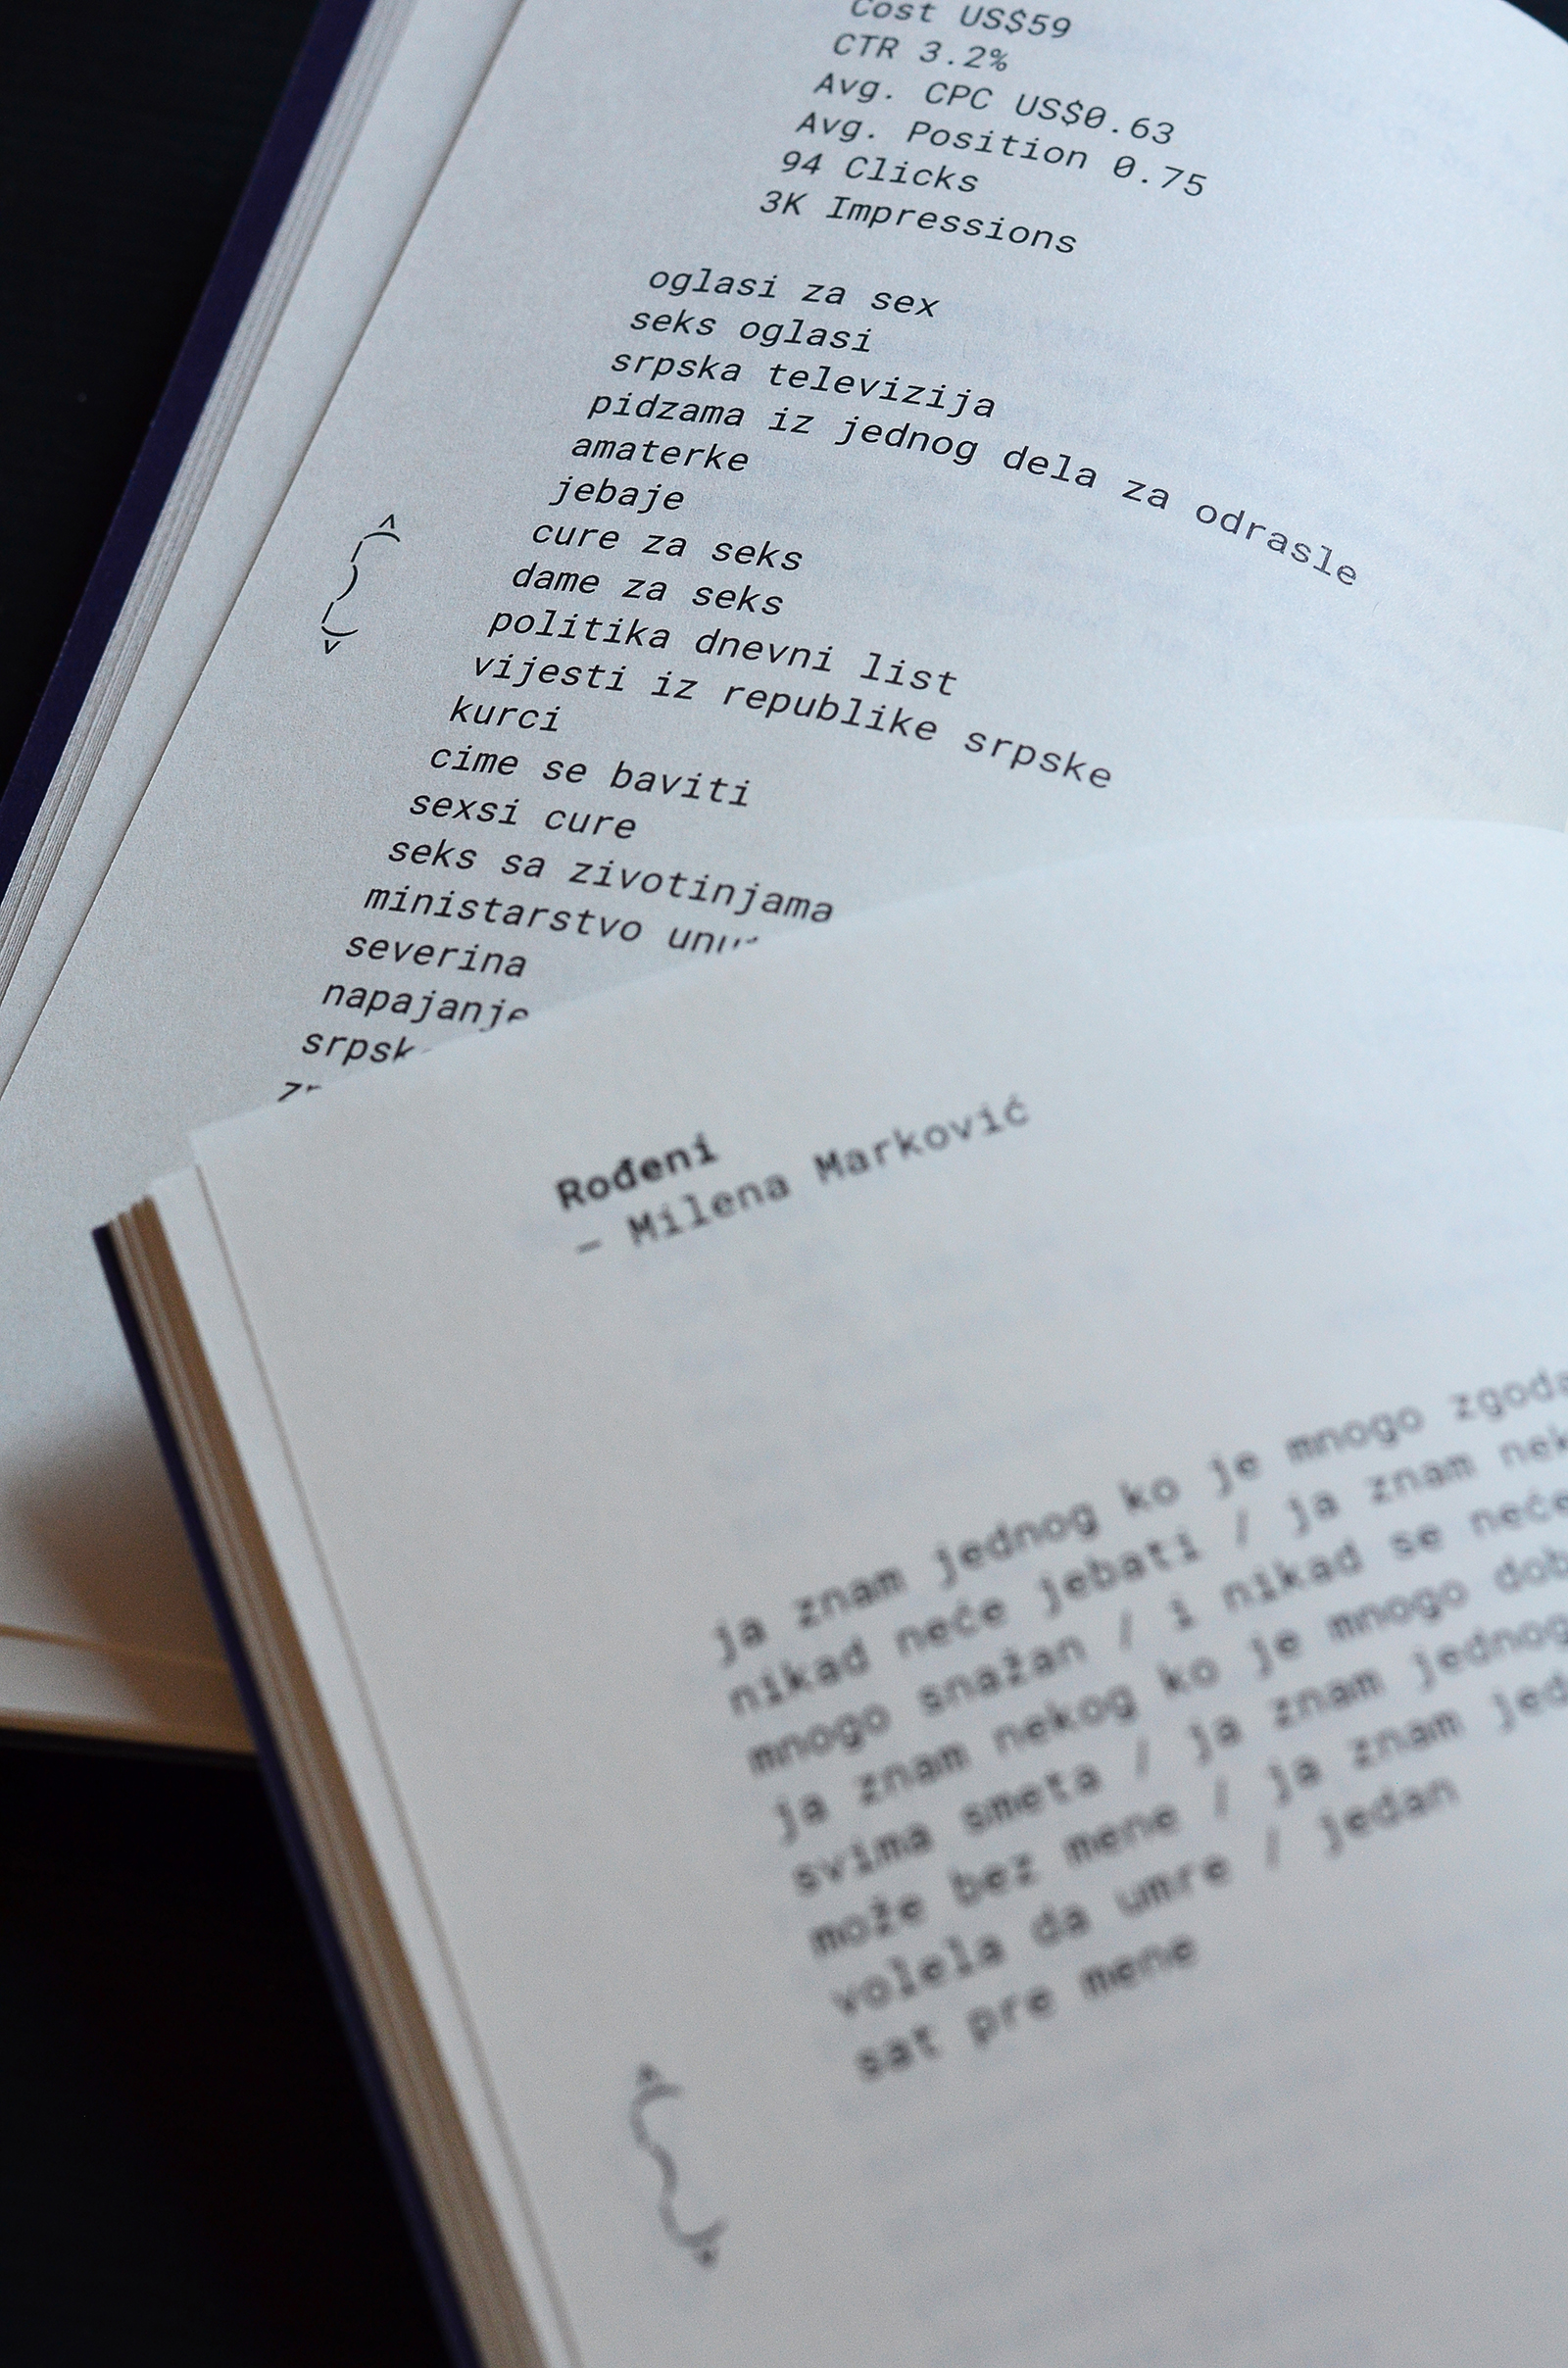 Cost US$59
CTR 3.2%
Avg. CPC US$0.63
Avg. Position 0.75
94 Clicks
3K Impressions
oglasi za sex
seks oglasi
srpska televizija
pidzama iz jednog dela za odrasle
amaterke
jebaje
cure za seks
dame za seks
politika dnevni list
vijesti iz republike srpske
kurci
cime se baviti
sexsi cure
seks sa zivotinjama
ministarstvo
severina
napajanje
Rođeni
– Milena Marković
ja znam jednog ko je mnogo
nikad neće jebati / ja znam
mnogo snažan / i nikad se neće
ja znam nekog ko je mnogo
svima smeta / ja znam jednog
može bez mene / ja znam
volela da umre / jedan
sat pre mene